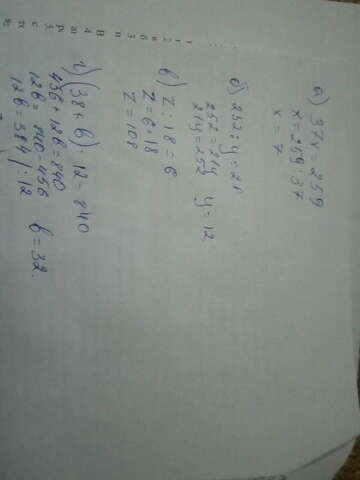 а) 37x = 259
x = 259 : 37
x = 7
б) 252 : y = 21
252 = 21y
21y = 252 y = 12
в) Z : 18 = 6
Z = 6 · 18
Z = 108
г) (38 + b) · 12 = 840
456 + 12b = 840
12b = 840 - 456
12b = 384 | : 12 b = 32.